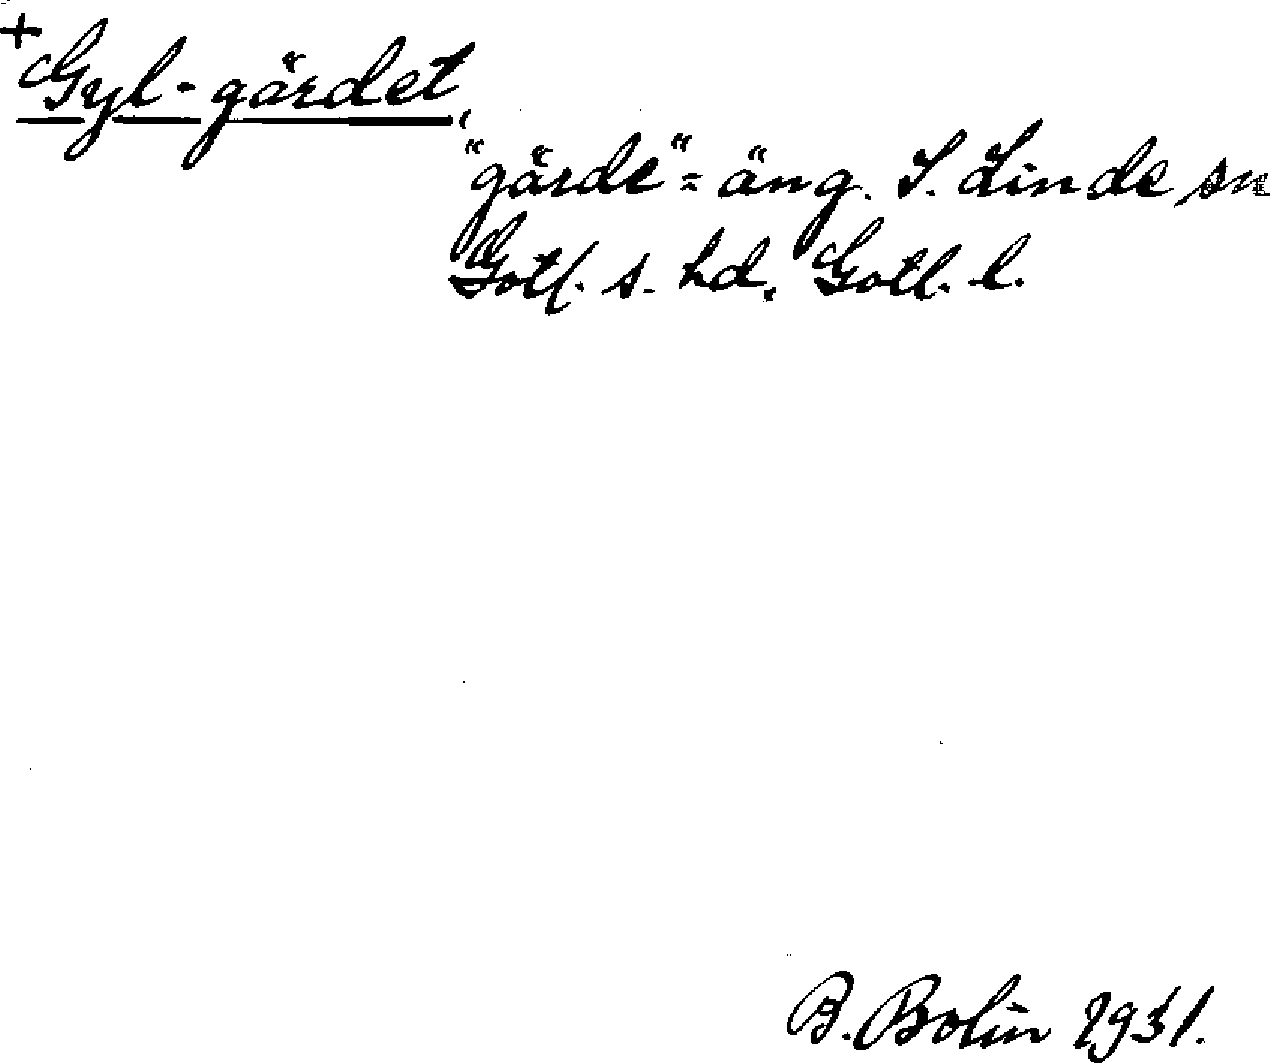 + Gyl-gärdet,
"gärde" = äng. S. Linde sn
Gotl. s. hd. Gotl. l.
B. Bolin 1931.